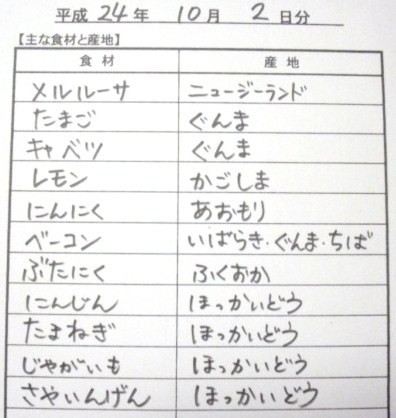 平成 24 年 10 月 2 日分
【主な食材と産地】
食材 産地
メルルーサ ニュージーランド
たまご ぐんま
キャベツ ぐんま
レモン かごしま
にんにく あおもり
ベーコン いばらき・ぐんま・ちば
ぶたにく ふくおか
にんじん ほっかいどう
たまねぎ ほっかいどう
じゃがいも ほっかいどう
さやいんげん ほっかいどう